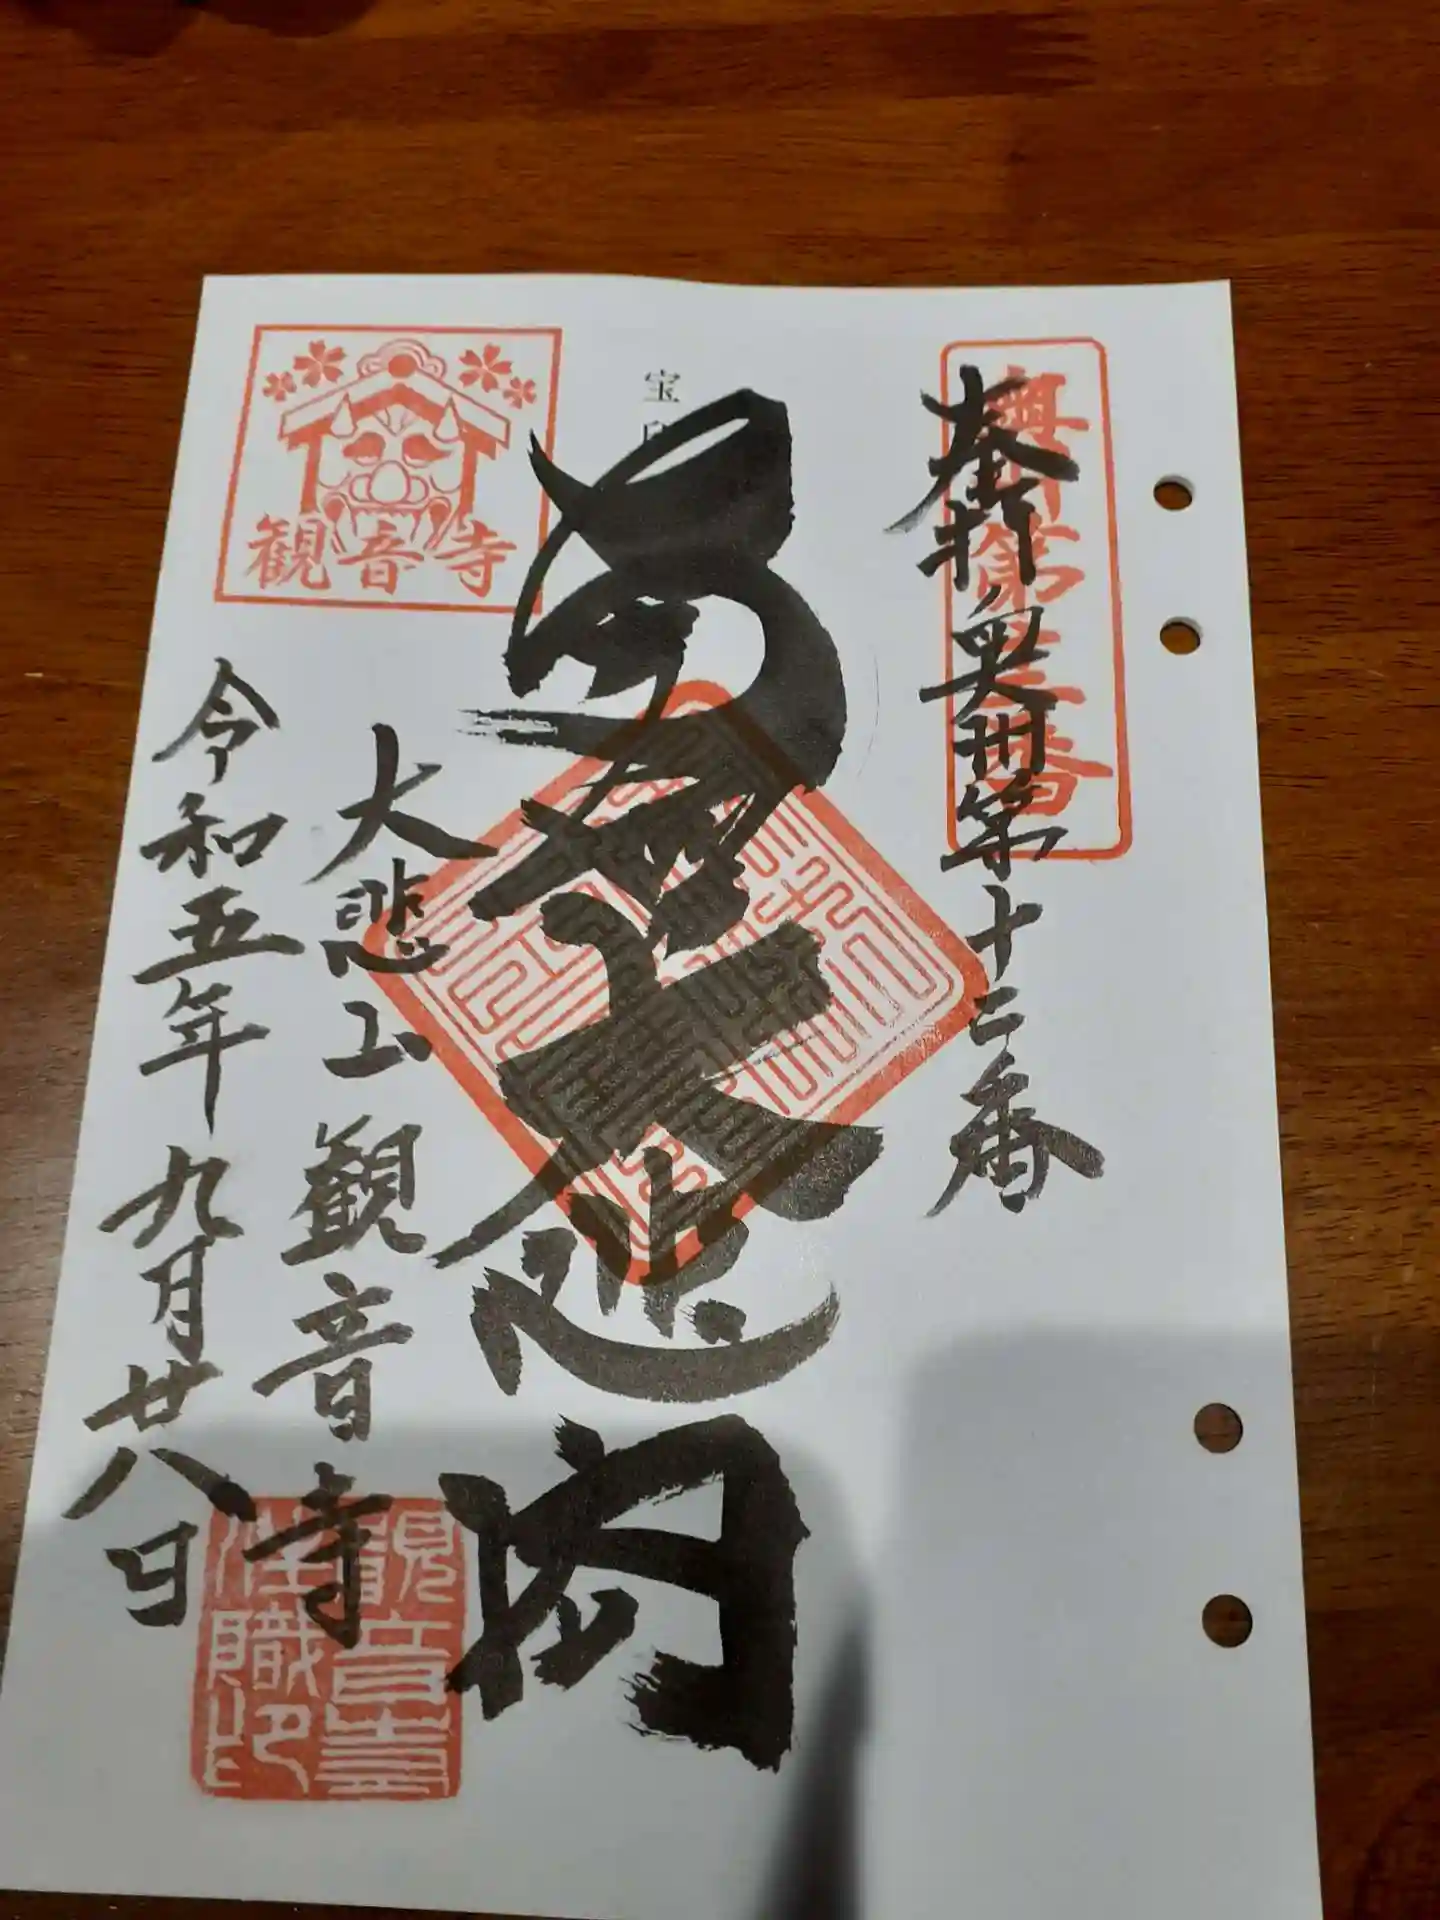 奉拝 奥州第十二番
奥州第十二番
宝印
大悲閣
大悲山観音寺
令和五年九月廿八日
観音寺
観音寺
住職印